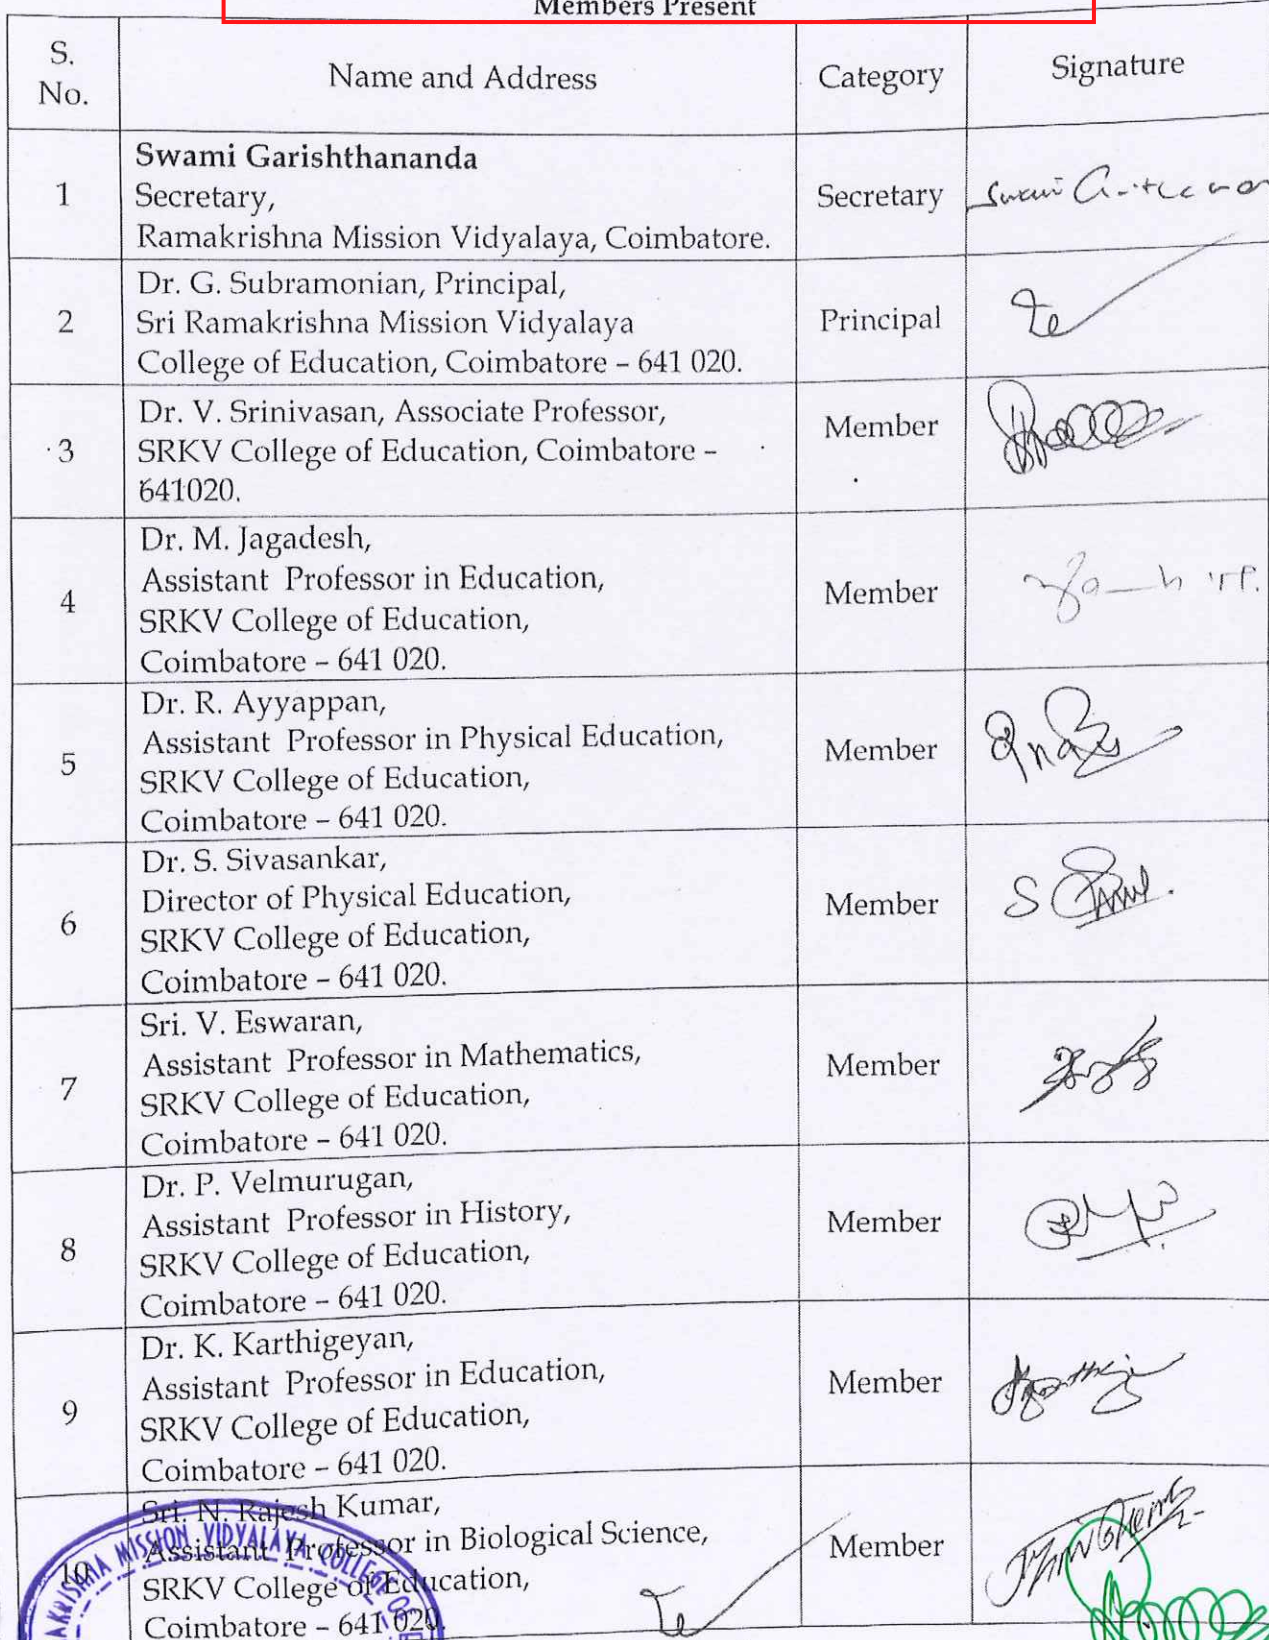 Members Present
S. No.
Name and Address
Category
Signature
1
Swami Garishthananda
Secretary,
Ramakrishna Mission Vidyalaya, Coimbatore.
Secretary
Swami
2
Dr. G. Subramonian, Principal,
Sri Ramakrishna Mission Vidyalaya
College of Education, Coimbatore – 641 020.
Principal
3
Dr. V. Srinivasan, Associate Professor,
SRKV College of Education, Coimbatore –
641020.
Member
4
Dr. M. Jagadesh,
Assistant Professor in Education,
SRKV College of Education,
Coimbatore – 641 020.
Member
5
Dr. R. Ayyappan,
Assistant Professor in Physical Education,
SRKV College of Education,
Coimbatore – 641 020.
Member
6
Dr. S. Sivasankar,
Director of Physical Education,
SRKV College of Education,
Coimbatore – 641 020.
Member
7
Sri. V. Eswaran,
Assistant Professor in Mathematics,
SRKV College of Education,
Coimbatore – 641 020.
Member
8
Dr. P. Velmurugan,
Assistant Professor in History,
SRKV College of Education,
Coimbatore – 641 020.
Member
9
Dr. K. Karthigeyan,
Assistant Professor in Education,
SRKV College of Education,
Coimbatore – 641 020.
Member
10
Sri. N. Rajesh Kumar,
Assistant Professor in Biological Science,
SRKV College of Education,
Coimbatore – 641 020.
Member
MISSION VIDYALAYA COLLEGE OF